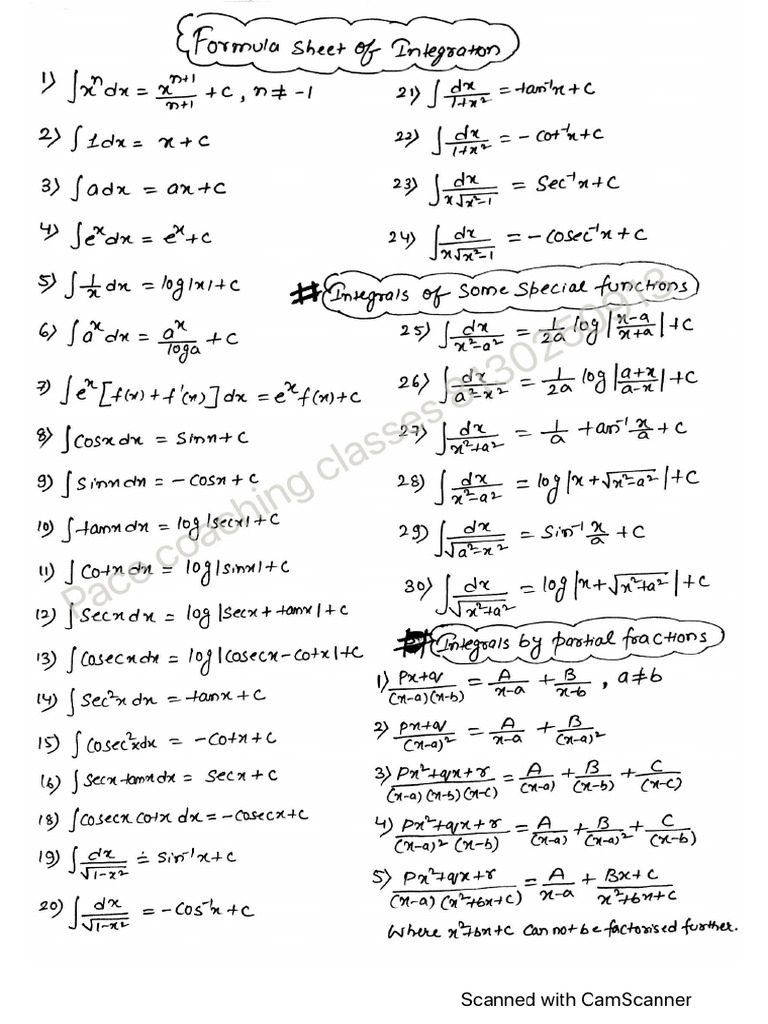 Formula Sheet of Integration
1) ∫xⁿdx = xⁿ⁺¹/n+1 + c, n ≠ -1
2) ∫1dx = x + c
3) ∫adx = ax + c
4) ∫eˣdx = eˣ + c
5) ∫1/x dx = log|x| + c
6) ∫aˣdx = aˣ/loga + c
7) ∫eˣ[f(x) + f'(x)]dx = eˣf(x) + c
8) ∫cosxdx = sinx + c
9) ∫sinxdx = -cosx + c
10) ∫tanxdx = log|secx| + c
11) ∫cotxdx = log|sinx| + c
12) ∫secxdx = log|secx + tanx| + c
13) ∫cosecxdx = log|cosecx - cotx| + c
14) ∫sec²xdx = tanx + c
15) ∫cosec²xdx = -cotx + c
16) ∫secxtanxdx = secx + c
18) ∫cosecxcotxdx = -cosecx + c
19) ∫dx/√1-x² = sin⁻¹x + c
20) ∫dx/√1-x² = -cos⁻¹x + c
21) ∫dx/1+x² = tan⁻¹x + c
22) ∫dx/1+x² = -cot⁻¹x + c
23) ∫dx/x√x²-1 = sec⁻¹x + c
24) ∫dx/x√x²-1 = -cosec⁻¹x + c
# Integrals of Some Special functions
25) ∫dx/x²-a² = 1/2a log|x-a/x+a| + c
26) ∫dx/a²-x² = 1/2a log|a+x/a-x| + c
27) ∫dx/x²+a² = 1/a tan⁻¹ x/a + c
28) ∫dx/x²-a² = log|x + √x²-a²| + c
29) ∫dx/√a²-x² = sin⁻¹ x/a + c
30) ∫dx/√x²+a² = log|x + √x²+a²| + c
Integrals by partial fractions
1) px+q/(x-a)(x-b) = A/x-a + B/x-b, a≠b
2) px+q/(x-a)² = A/x-a + B/(x-a)²
3) px²+qx+r/(x-a)(x-b)(x-c) = A/(x-a) + B/(x-b) + C/(x-c)
4) px²+qx+r/(x-a)²(x-b) = A/(x-a) + B/(x-a)² + C/(x-b)
5) px²+qx+r/(x-a)(x²+bx+c) = A/x-a + Bx+c/x²+bx+c
Where x²+bx+c can not be factorised further.
Pace coaching classes
Scanned with CamScanner